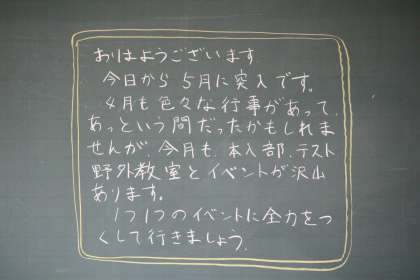 おはようございます
今日から5月に突入です。
4月も色々な行事があって、
あっという間だったかもしれま
せんが、今月も、本入部、テスト
野外教室とイベントが沢山
あります。
1つ1つのイベントに全力をつ
くして行きましょう。